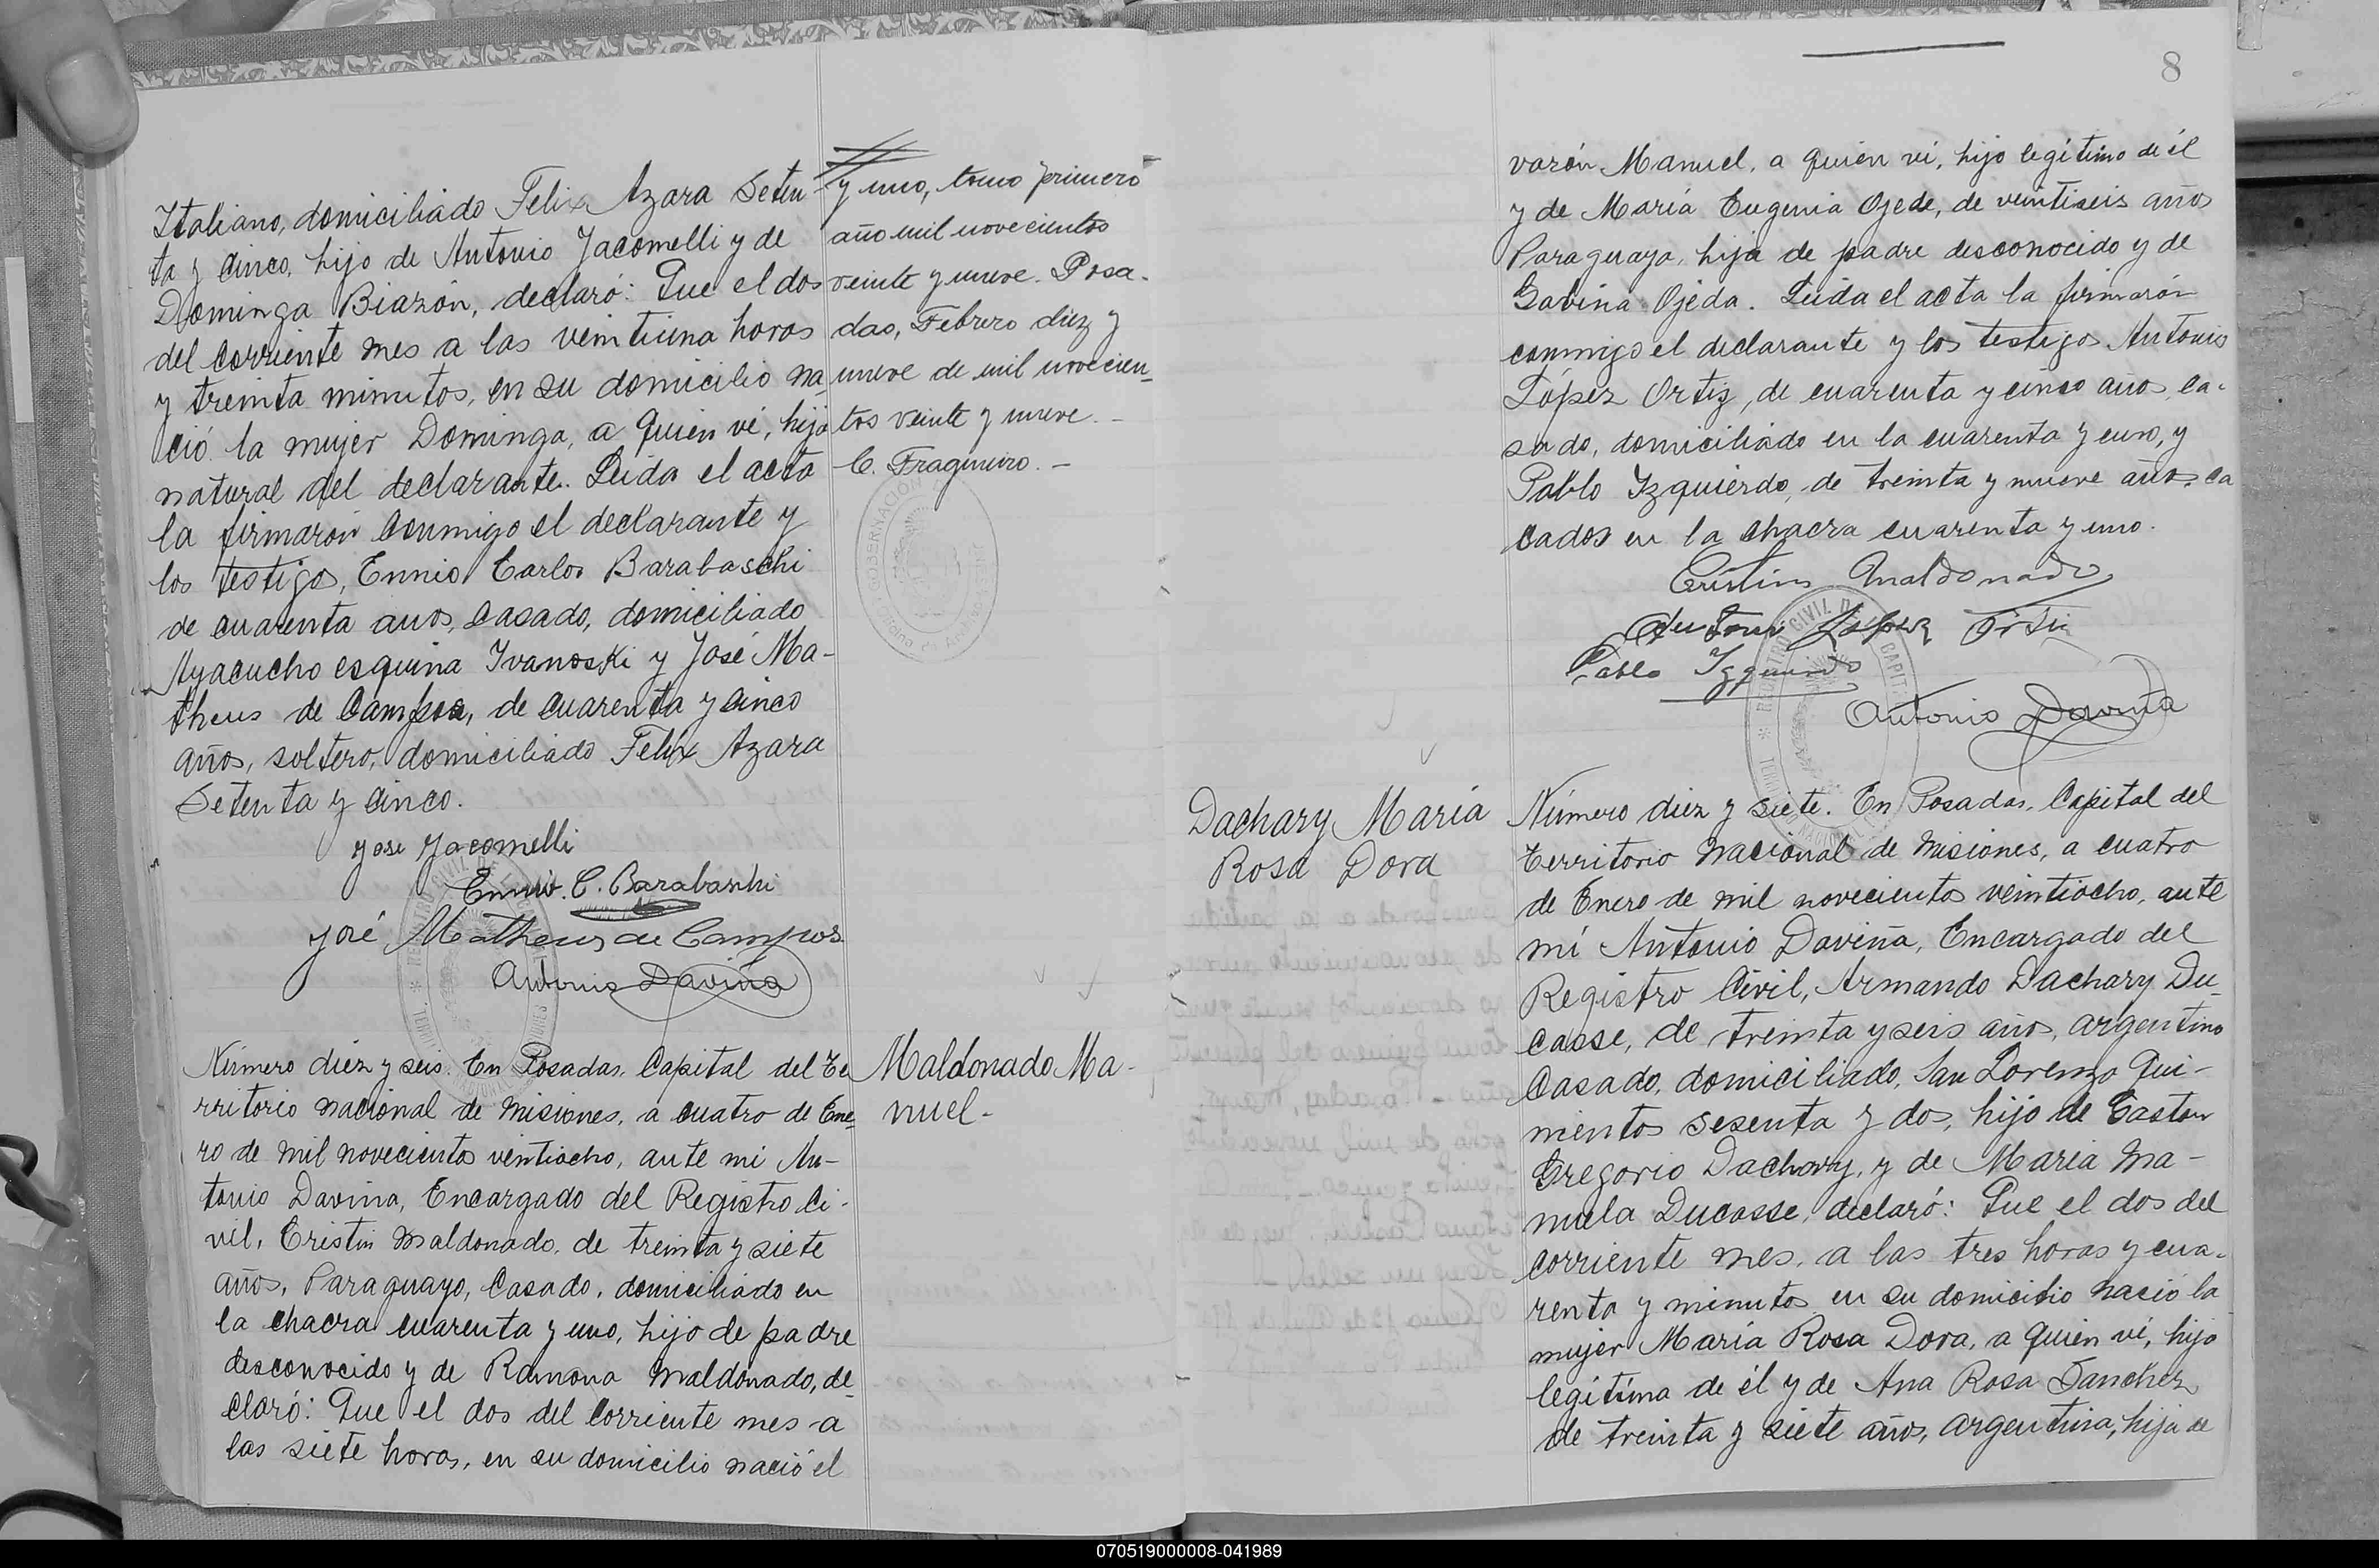 Italiano, domiciliado Felix Azara Seten-
ta y cinco, hijo de Antonio Jacomelli y de
Dominga Biazón, declaró: Que el dos
del corriente mes a las veintiuna horas
y treinta minutos, en su domicilio na
ció la mujer Dominga, a quien ví, hija
natural del declarante. Leida el acta
la firmaron conmigo el declarante y
los testigos, Ennio Carlos Barabaschi
de cuarenta años, casado, domiciliado
Ayacucho esquina Ivanoski y José Ma-
theus de Campos, de cuarenta y cinco
años, soltero, domiciliado Felix Azara
Setenta y cinco.
José Jacomelli
Ennio C. Barabaschi
José Matheus de Campos
Antonio Daviña
y uno, tomo primero
año mil novecientos
veinte y nueve. Posa-
das, Febrero diez y
nueve de mil novecien-
tos veinte y nueve. -
C. Fragueiro. -
Número diez y seis. En Posadas, Capital del Te
rritorio nacional de Misiones, a cuatro de Ene
ro de mil novecientos veintiocho, ante mi An-
tonio Daviña, Encargado del Registro Ci-
vil, Cristin Maldonado, de treinta y siete
años, Paraguayo, Casado, domiciliado en
la chacra cuarenta y uno, hijo de padre
desconocido y de Ramona Maldonado, de
claró: Que el dos del corriente mes a
las siete horas, en su domicilio nació el
Maldonado Ma-
nuel-
8
varón Manuel, a quien ví, hijo legítimo de él
y de María Eugenia Ojede, de veintiseis años
Paraguaya, hija de padre desconocido y de
Gavina Ojeda. Leida el acta la firmarón
conmigo el declarante y los testigos Antonio
López Ortiz, de cuarenta y cinco años, ca-
sado, domiciliado en la cuarenta y uno, y
Pablo Izquierdo, de treinta y nueve años, ca
sados en la chacra cuarenta y uno.
Cristin Maldonado
Antoni López Ortiz
Pablo Izquierdo
Antonio Daviña
Dachary María
Rosa Dora
Número diez y siete. En Posadas, Capital del
Territorio Nacional de Misiones, a cuatro
de Enero de mil novecientos veintiocho, ante
mí Antonio Daviña, Encargado del
Registro Civil, Armando Dachary Du-
casse, de treinta y seis años, argentino
Casado, domiciliado, San Lorenzo Qui-
nientos sesenta y dos, hijo de Gaston
Gregorio Dachary, y de María Ma-
nuela Ducasse, declaró: Que el dos del
corriente mes, a las tres horas y cua-
renta y minutos en su domicilio nació la
mujer María Rosa Dora, a quien ví, hija
legítima de él y de Ana Rosa Sanchez
de treinta y siete años, argentina, hija de
070519000008-041989